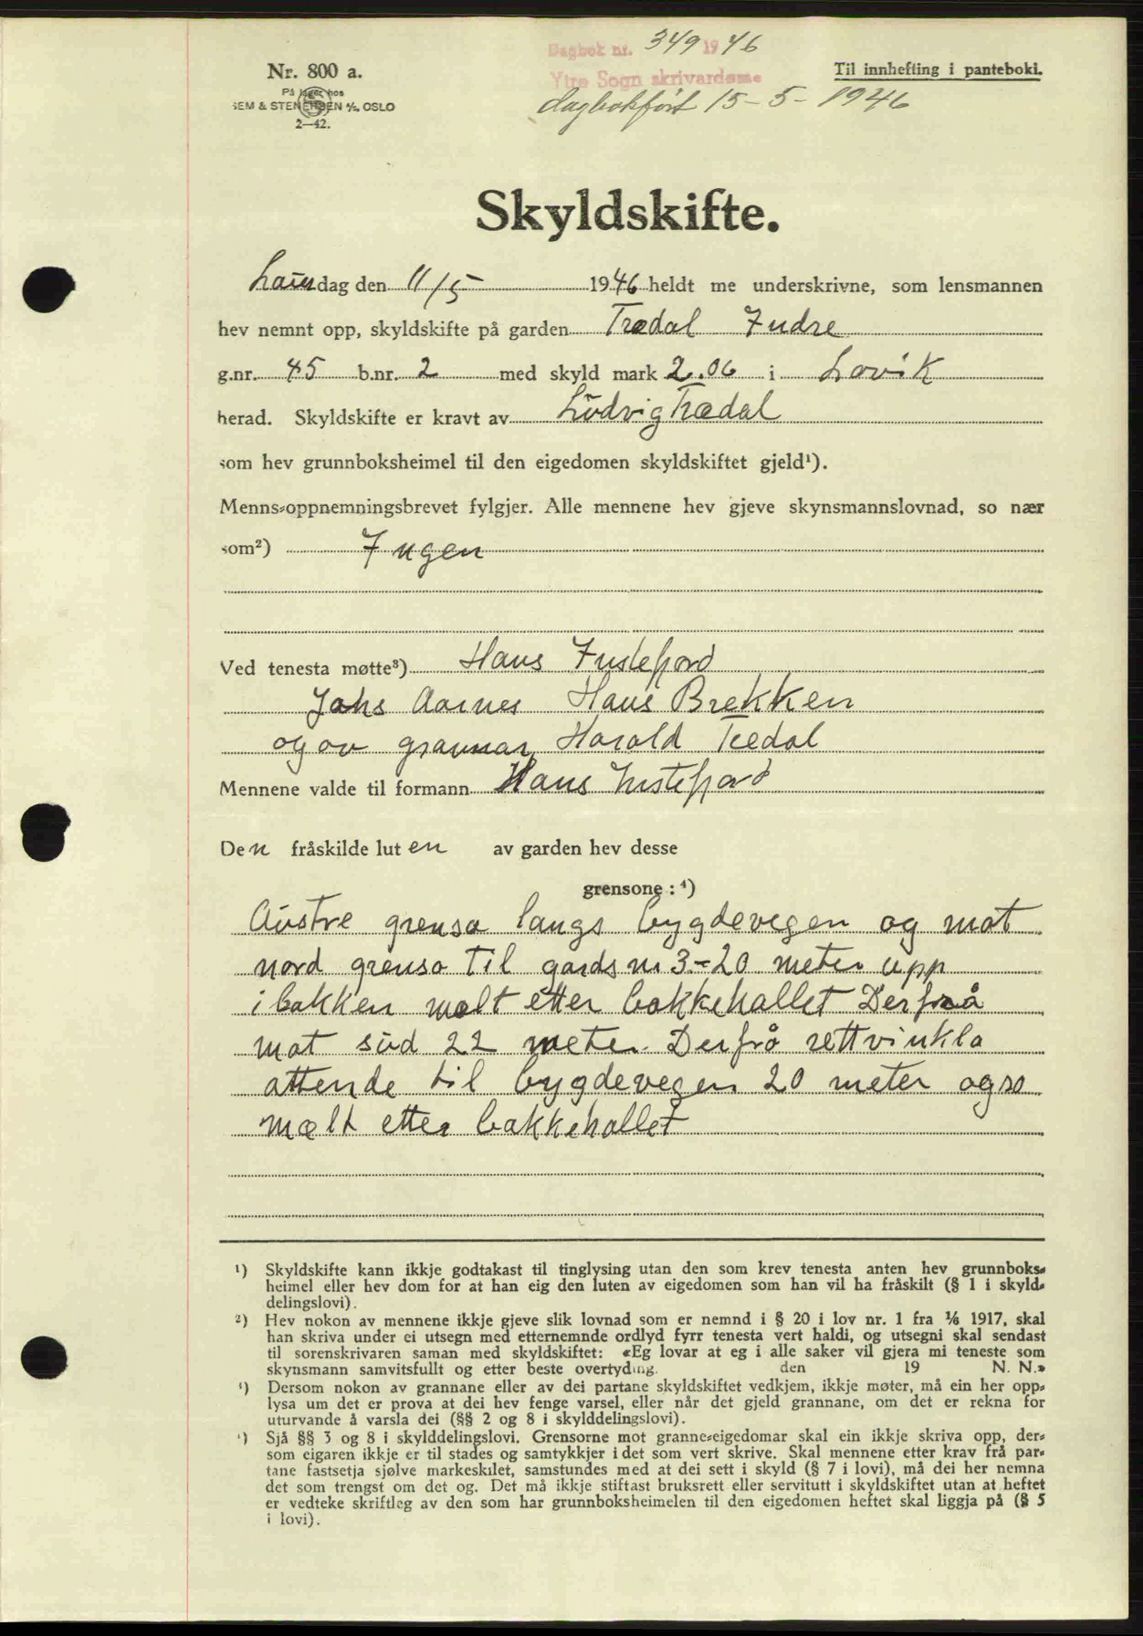 Dagbok nr. 349 1946
Ytre Sogn skrivardøme
dagbokført 15-5-1946
Til innhefting i panteboki.
Nr. 800 a.
På lager hos
SEM & STENERSEN A/S, OSLO
2—42.
Skyldskifte.
Laurdag den 11/5 1946 heldt me underskrivne, som lensmannen
hev nemnt opp, skyldskifte på garden Trædal Indre
g.nr. 45 b.nr. 2 med skyld mark 2.06 i Lavik
herad. Skyldskifte er kravt av Ludvig Trædal
som hev grunnboksheimel til den eigedomen skyldskiftet gjeld¹).
Menns-oppnemningsbrevet fylgjer. Alle mennene hev gjeve skynsmannslovnad, so nær
som²) Ingen
Ved tenesta møtte³) Hans Instefjord
Johs Aarnes Hans Brekken
og av grannar, Harald Tredal
Mennene valde til formann Hans Instefjord
Den fråskilde luten av garden hev desse
grensone : ⁴)
Austre grensa langs bygdevegen og mot
nord grensa til gards nr 3.- 20 meter upp
i bakken mælt etter bakkehallet Derfrå
mot sud 22 meter. Derfrå rettvinkla
attende til bygdevegen 20 meter ogso
mælt etter bakkehallet
¹) Skyldskifte kann ikkje godtakast til tinglysing utan den som krev tenesta anten hev grunnboks-
heimel eller hev dom for at han eig den luten av eigedomen som han vil ha fråskilt (§ 1 i skyld-
delingslovi).
²) Hev nokon av mennene ikkje gjeve slik lovnad som er nemnd i § 20 i lov nr. 1 fra ⅙ 1917, skal
han skriva under ei utsegn med etternemnde ordlyd fyrr tenesta vert haldi, og utsegni skal sendast
til sorenskrivaren saman med skyldskiftet: «Eg lovar at eg i alle saker vil gjera mi teneste som
skynsmann samvitsfullt og etter beste overtyding. den 19 N. N.»
³) Dersom nokon av grannane eller av dei partane skyldskiftet vedkjem, ikkje møter, må ein her opp-
lysa um det er prova at dei hev fenge varsel, eller når det gjeld grannane, om det er rekna for
uturvande å varsla dei (§§ 2 og 8 i skylddelingslovi).
⁴) Sjå §§ 3 og 8 i skylddelingslovi. Grensorne mot granne-eigedomar skal ein ikkje skriva opp, der-
som eigaren ikkje er til stades og samtykkjer i det som vert skrive. Skal mennene etter krav frå par-
tane fastsetja sjølve markeskilet, samstundes med at dei sett i skyld (§ 7 i lovi), må dei her nemna
det som trengst om det og. Det må ikkje stiftast bruksrett eller servitutt i skyldskiftet utan at heftet
er vedteke skriftleg av den som har grunnboksheimelen til den eigedomen heftet skal liggja på (§ 5
i lovi).